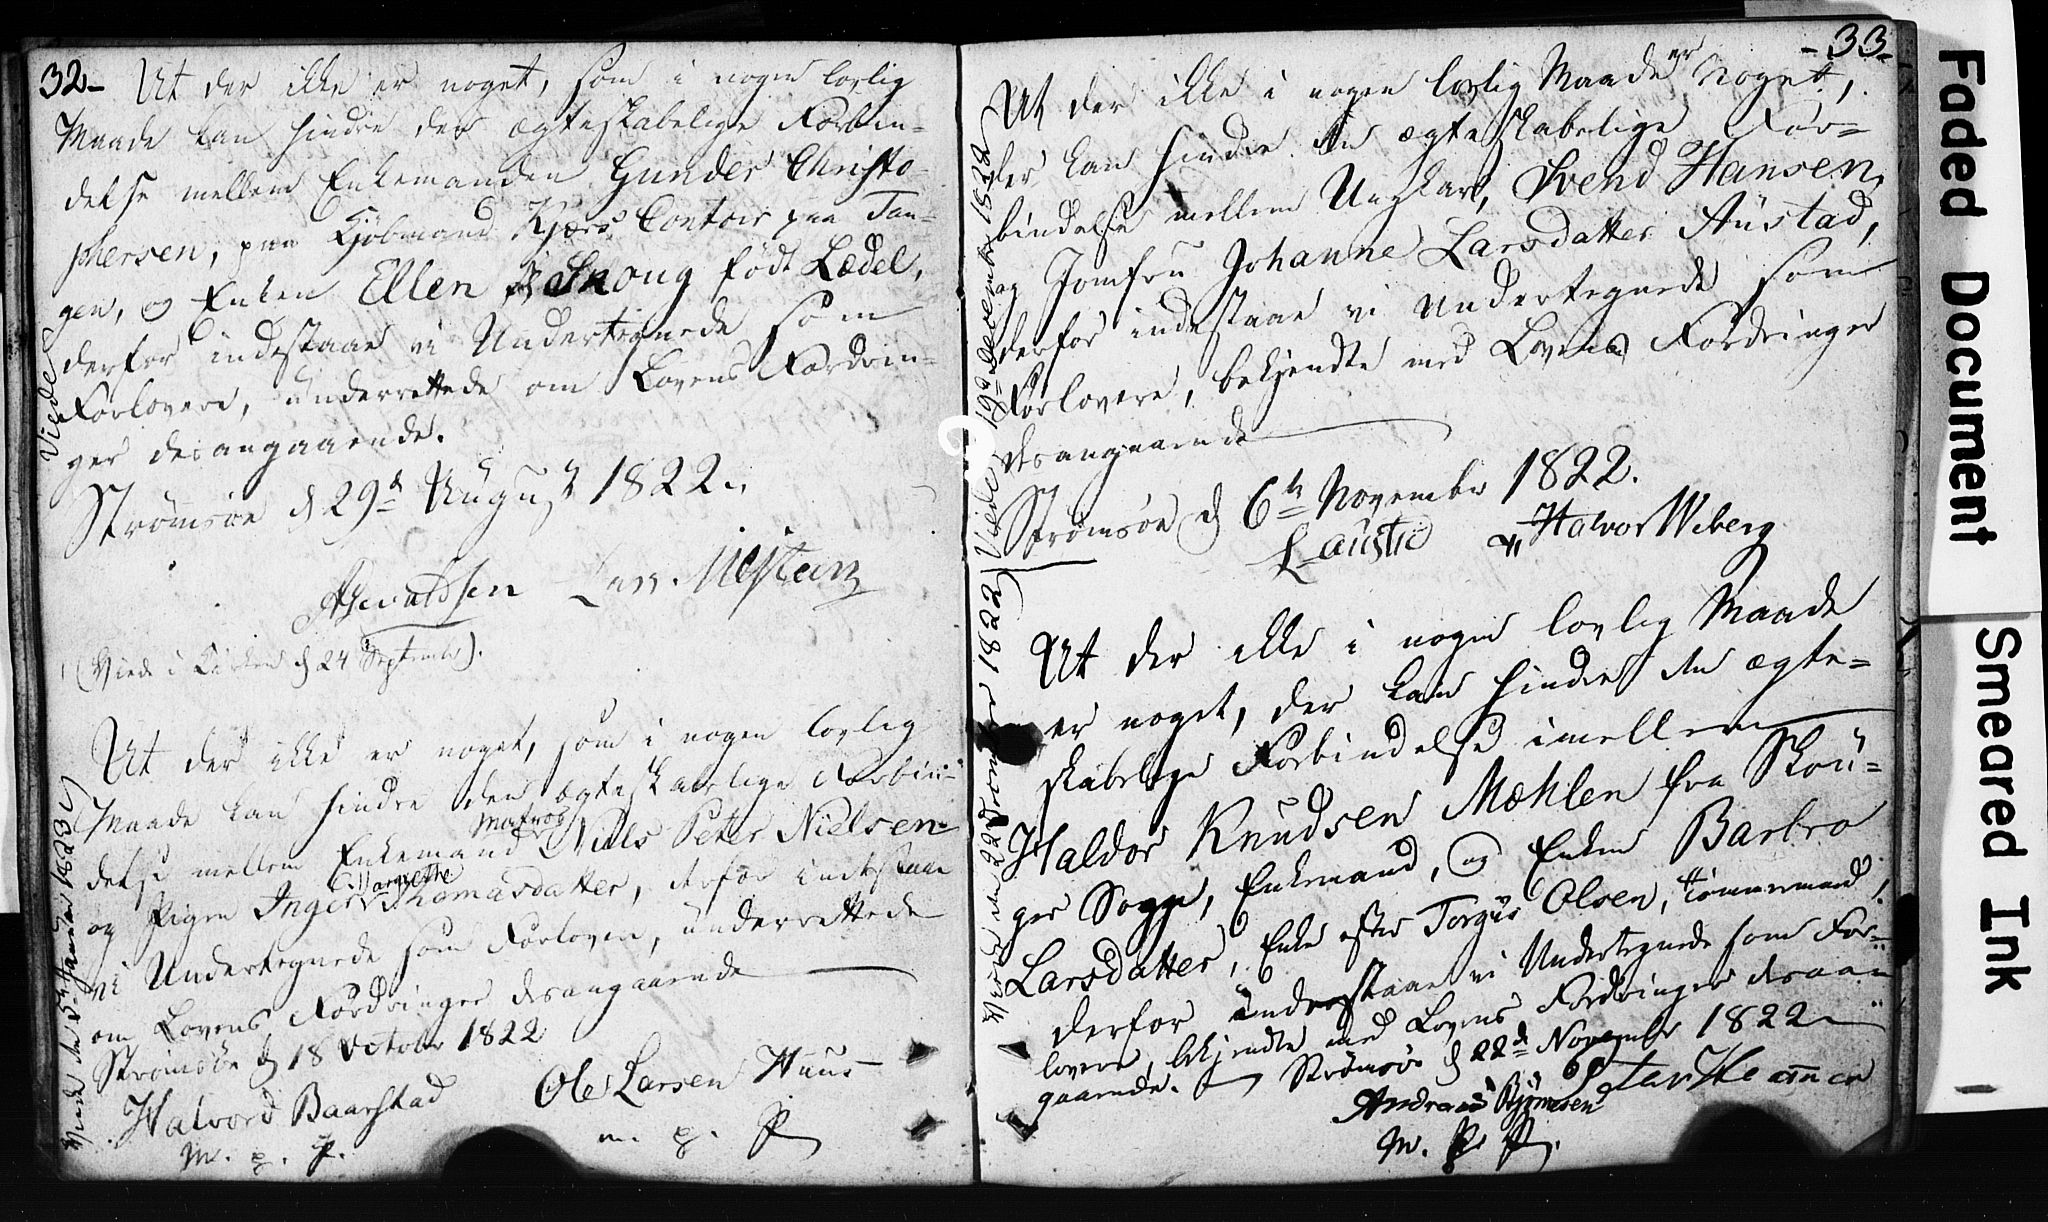 32-
At der ikke er noget, som i nogen lovlig
Maade kan hindre den ægteskabelige Forbin-
delse mellem Enkemanden Gunder Christo-
phersen, paa Kjøbmand Kjærs Contoir paa Tan-
gen, og Enken Ellen Skoug født Lædel,
derfor indestaae vi Undertegnede som
Forlovere, underrettede om Lovens Fordrin-
ger desangaaende.
Strømsøe d 29d August 1822.
Viede
(Viede i Kirken d 24 September).
At der ikke er noget, som i nogen lovlig
Maade kan hindre den ægteskabelige Forbin-
delse mellem Enkemand Matros Niels Peter Nielsen
og Pigen Inger Margrethe Thomasdatter, derfor indestaae
vi Undertegnede som Forlovere, underrettede
om Lovens Fordringer desangaaende
Strømsøe d 18 October 1822
Halvord Baarstad
Ole Larsen Huus
m. p. p.
m. p. p.
Viede den 5te Januar 1823
-33-
At der ikke i nogen lovlig Maade er noget,
der kan hindre den ægteskabelige For-
bindelse mellem Ungkarl, Svend Hansen,
og Jomfru Johanne Larsdatter Austad,
derfor indestaae vi Undertegnede som
Forlovere, bekjendte med Lovens Fordringer
desangaaende
Strømsøe d 6te November 1822.
L Austad
Halvor Wiberg
Viede 19de December 1822
At der ikke i nogen lovlig Maade
er noget, der kan hindre den ægte-
skabelige Forbindelse imellem
Haldor Knudsen Mæhlen fra Skou-
ger Sogn, Enkemand, og Enken Barbro
Larsdatter, Enke efter Torgus Olsen, Tømmermand,
derfor indestaae vi Undertegnede som For-
lovere, bekjendte med Lovens Fordringer desan-
gaaende. Strømsøe d 22d November 1822
Andreas Bjørnesen
m. p. p.
Viede den 22 December 1822
Faded Document
Smeared Ink